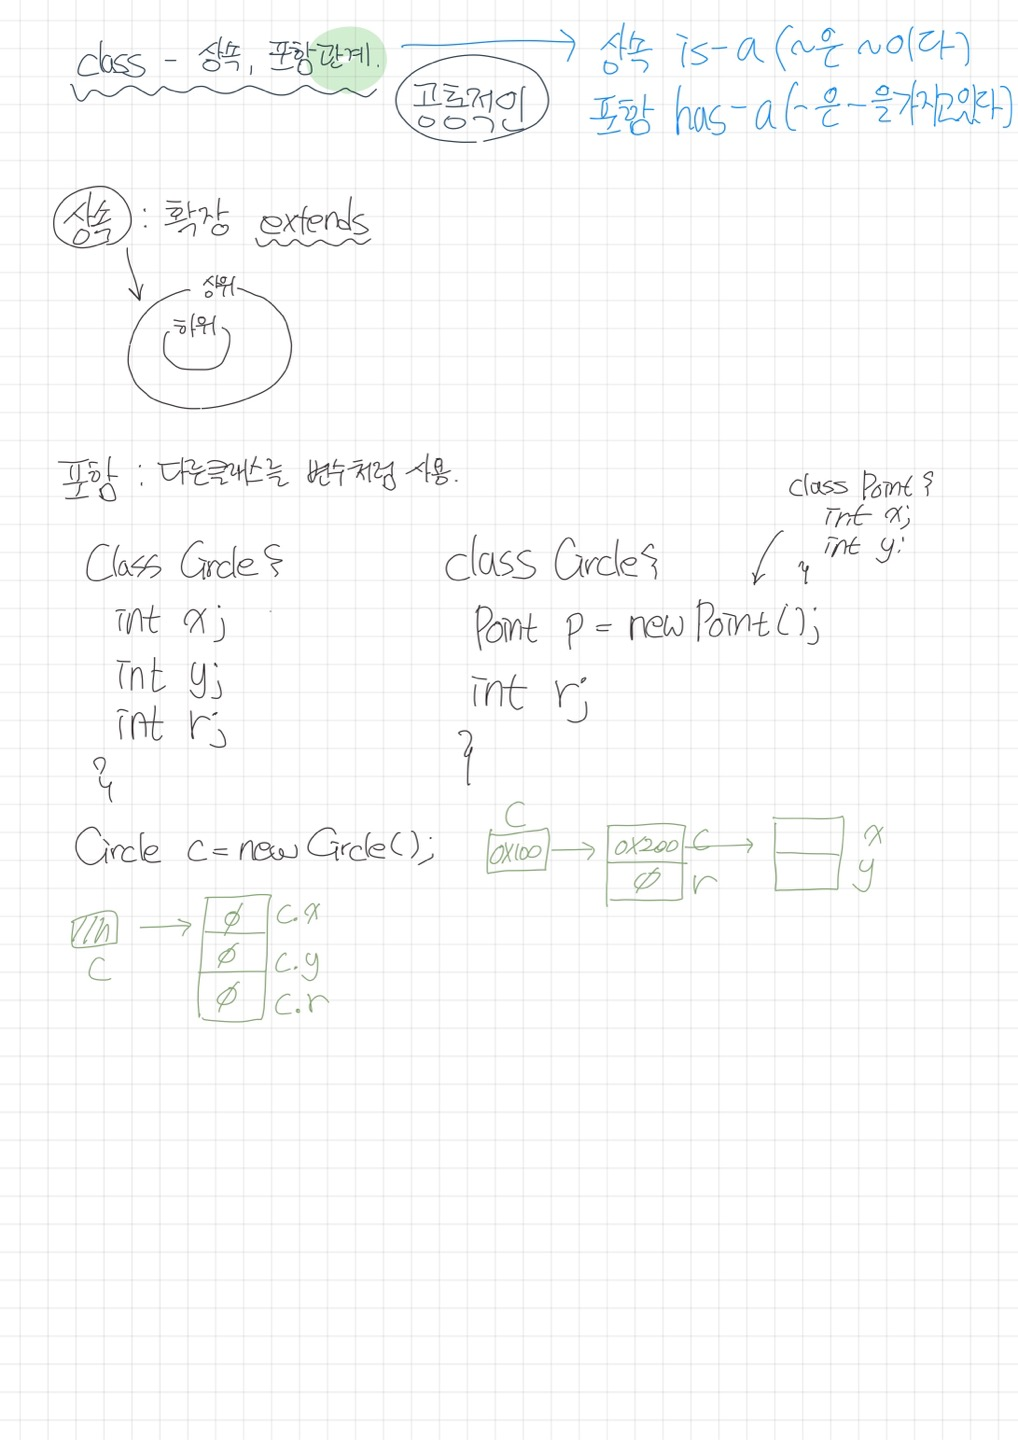 class - 상속, 포함관계.
공통적인
상속 is-a (~은 ~이다)
포함 has-a (~은 ~을가지고있다)
상속 : 확장 extends
상위
하위
포함 : 다른클래스를 변수처럼 사용.
class Point {
int x;
int y;
}
Class Circle {
int x;
int y;
int r;
}
class Circle {
Point p = new Point();
int r;
}
Circle c = new Circle();
C
0x100
0x200 c
Ø r
x
y
C
Ø c.x
Ø c.y
Ø c.r